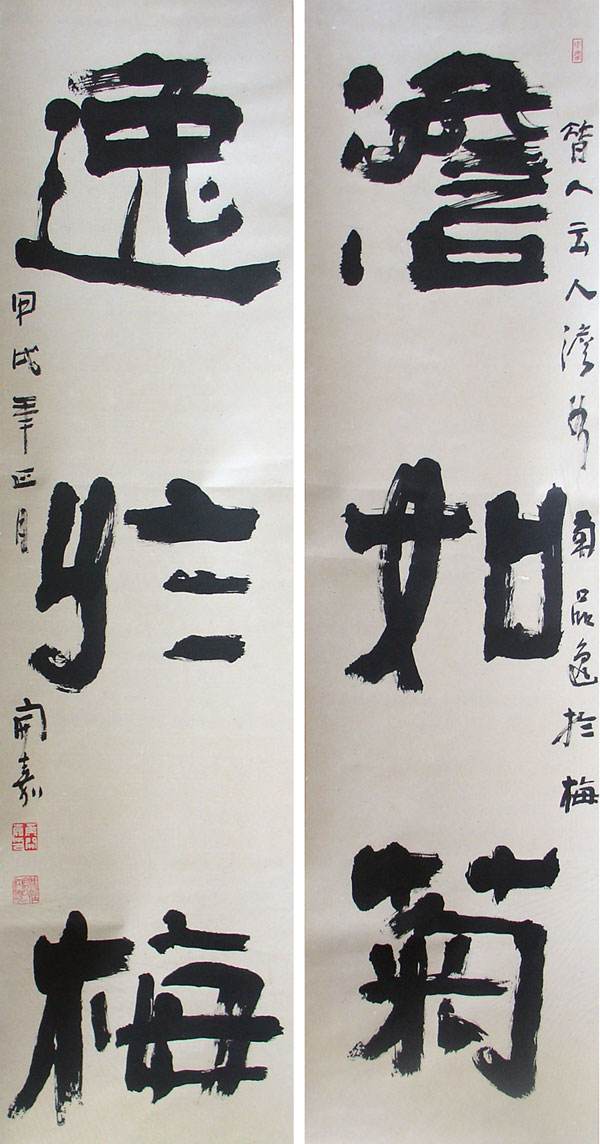 昔人云人澹如菊品逸於梅
澹如菊
逸於梅
甲戌年正月 開嘉